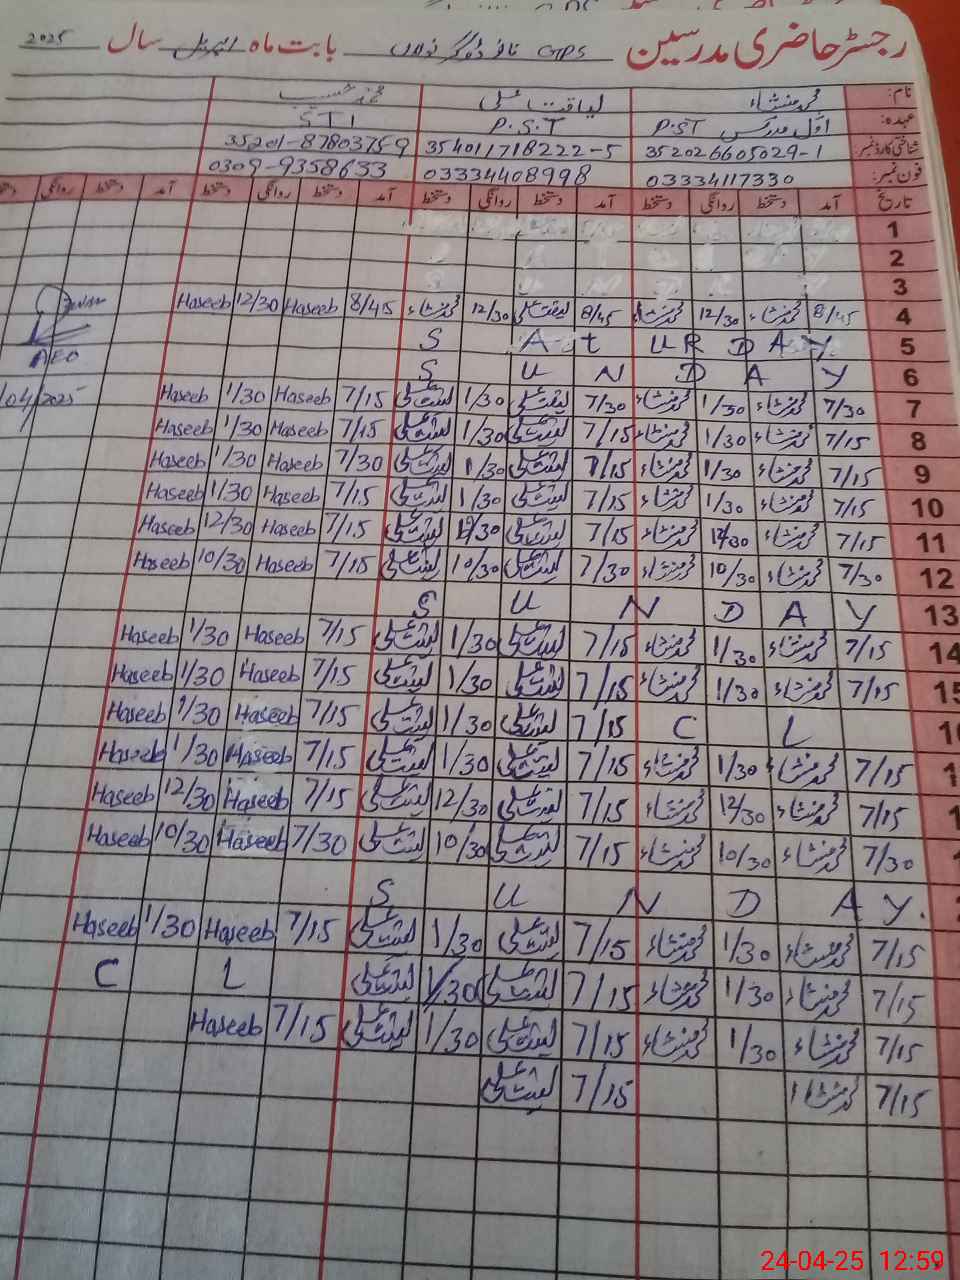 رجسٹر حاضری مدرسین GPS بابت ماہ اپریل سال 2025
نام: محمد منشاء لیاقت علی محمد حسیب
عہدہ: اول مدرس P.S.T P.S.T STI
شناختی کارڈ نمبر 352026605029-1 354011718222-5 35201-8780375-9
فون نمبر: 03334117330 03334408998 0309-9358633
تاریخ آمد دستخط روانگی دستخط آمد دستخط روانگی دستخط آمد دستخط روانگی دستخط آمد دستخط روانگی دستخط
1
2
3
4 8/45 محمد منشاء 12/30 محمد منشاء 8/45 لیاقت علی 12/30 محمد منشاء 8/45 Haseeb 12/30 Haseeb
5 S A t U R D A Y
AEO
6 S U N D A Y
7 7/30 محمد منشاء 1/30 محمد منشاء 7/30 لیاقت علی 1/30 لیاقت علی 7/15 Haseeb 1/30 Haseeb
/04/2025
8 7/15 محمد منشاء 1/30 محمد منشاء 7/15 لیاقت علی 1/30 لیاقت علی 7/15 Haseeb 1/30 Haseeb
9 7/15 محمد منشاء 1/30 محمد منشاء 7/15 لیاقت علی 1/30 لیاقت علی 7/30 Haseeb 1/30 Haseeb
10 7/15 محمد منشاء 1/30 محمد منشاء 7/15 لیاقت علی 1/30 لیاقت علی 7/15 Haseeb 1/30 Haseeb
11 7/15 محمد منشاء 12/30 محمد منشاء 7/15 لیاقت علی 12/30 لیاقت علی 7/15 Haseeb 12/30 Haseeb
12 7/30 محمد منشاء 10/30 محمد منشاء 7/30 لیاقت علی 10/30 لیاقت علی 7/15 Haseeb 10/30 Haseeb
13 S U N D A Y
14 7/15 محمد منشاء 1/30 محمد منشاء 7/15 لیاقت علی 1/30 لیاقت علی 7/15 Haseeb 1/30 Haseeb
15 7/15 محمد منشاء 1/30 محمد منشاء 7/15 لیاقت علی 1/30 لیاقت علی 7/15 Haseeb 1/30 Haseeb
C L 7/15 لیاقت علی 1/30 لیاقت علی 7/15 Haseeb 1/30 Haseeb
7/15 محمد منشاء 1/30 محمد منشاء 7/15 لیاقت علی 1/30 لیاقت علی 7/15 Haseeb 1/30 Haseeb
7/15 محمد منشاء 12/30 محمد منشاء 7/15 لیاقت علی 12/30 لیاقت علی 7/15 Haseeb 12/30 Haseeb
7/30 محمد منشاء 10/30 محمد منشاء 7/15 لیاقت علی 10/30 لیاقت علی 7/30 Haseeb 10/30 Haseeb
S U N D A Y.
7/15 محمد منشاء 1/30 محمد منشاء 7/15 لیاقت علی 1/30 لیاقت علی 7/15 Haseeb 1/30 Haseeb
7/15 محمد منشاء 1/30 محمد منشاء 7/15 لیاقت علی 1/30 لیاقت علی C L
7/15 محمد منشاء 1/30 محمد منشاء 7/15 لیاقت علی 1/30 لیاقت علی 7/15 Haseeb
7/15 محمد منشاء 7/15 لیاقت علی
24-04-25 12:59